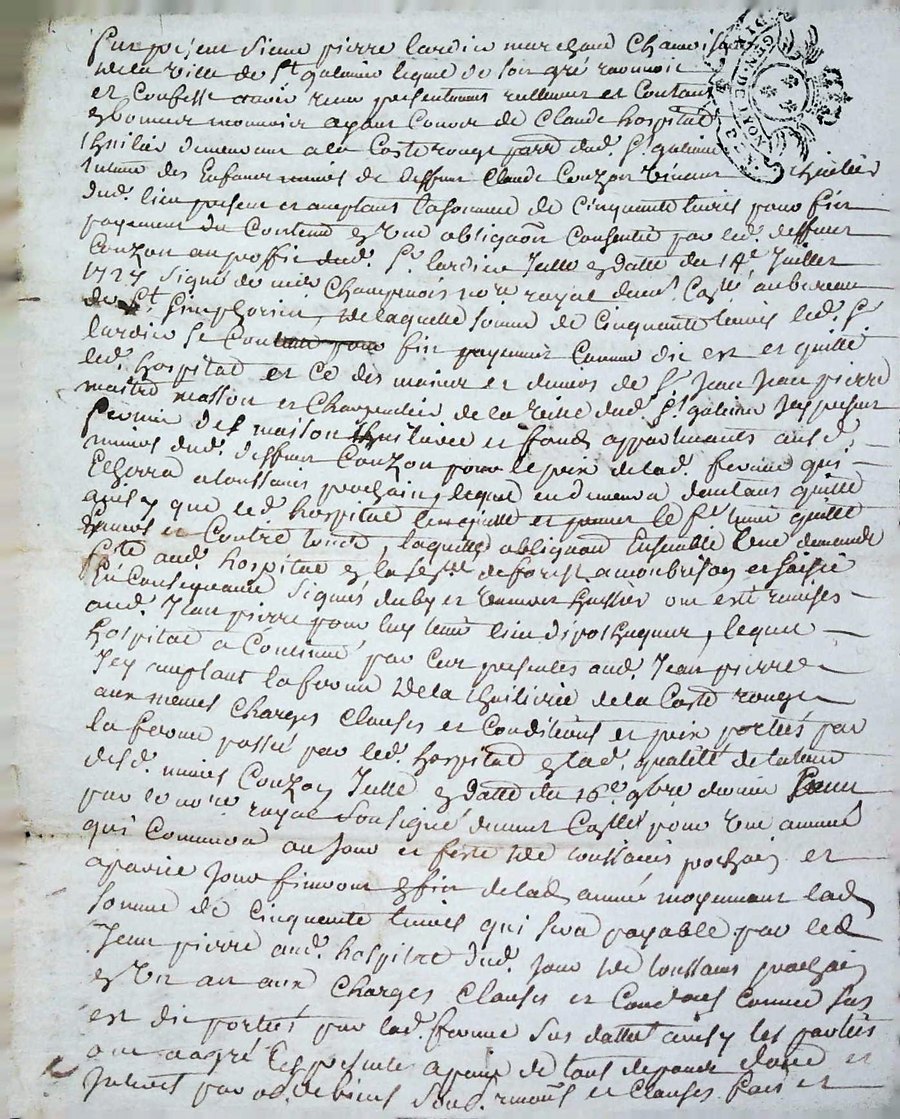 Sieur pierre lardier marchand Chamois
de la ville de St galmier lequel de son gré reconnoit
et Confesse avoir receu presentement reellement et Contant
en bonne monnoie ayant Cours de Claude hospital
thuilier demeurant a la Coste rouge parr dud. St galmier
tuteur des Enfans mineurs de deffunt Claude Couzon vivant thuilier
dud. lieu present et acceptant la somme de Cinquante livres pour fin
payement du Contenu en une obligaõn Consentie par led. deffunt
Couzon au proffit dud. Sr lardier Jelle en datte du 14e Juillet
1727 signé de me Champenois nore royal
de St Simphorien, de laquelle somme de Cinquante livres led. Sr
lardier se Contente pour fin payement Comme dit est et quitte
led. hospital et ce des mains et deniers de Sr Jean Jean pierre
maitre masson et Charpentier de la ville dud. St galmier Jcy present
fermier des maison thuilerie et fonds appartenants ausd.
mineurs dud. deffunt Couzon pour le prix de lad. ferme qui
Echerra a toussaints prochain, lequel en demeura dautant quitte
ainsy que led. hospital
Envers et Contre tous, laquelle obligation Ensemble une demande
aud. hospital en la seneschaussée de forest a monbrison et saisie
En Consequence signés duby et huissier ont esté remises
aud. Jean pierre pour luy tenir lieu dipothequer, lequel
hospital a Continué par Ces presentes aud. Jean pierre
Jcy acceptant la ferme de la thuilerie de la Coste rouge
aux mesmes Charges Clauses et Conditions et prix portés par
la ferme passée par led. hospital en lad. qualité de tuteur
desd. mineurs Couzon Jelle en datte du 16e 9bre dernier
par le nore royal soussigné pour une année
qui Commencera au Jour et feste de toussaints prochain et
a pareil Jour finira en fin de lad. année moyennant lad.
somme de Cinquante livres qui sera payable par led.
Jean pierre aud. hospital dud. Jour de toussaints prochain
en un an aux Charges Clauses et Conditions Comme sus
est dit portées par lad. ferme sus dattée ainsy les parties
ont agréé les presentes a peine de tous depens domages et
Interets par ob. de biens soub. renonc. et Clauses fait et